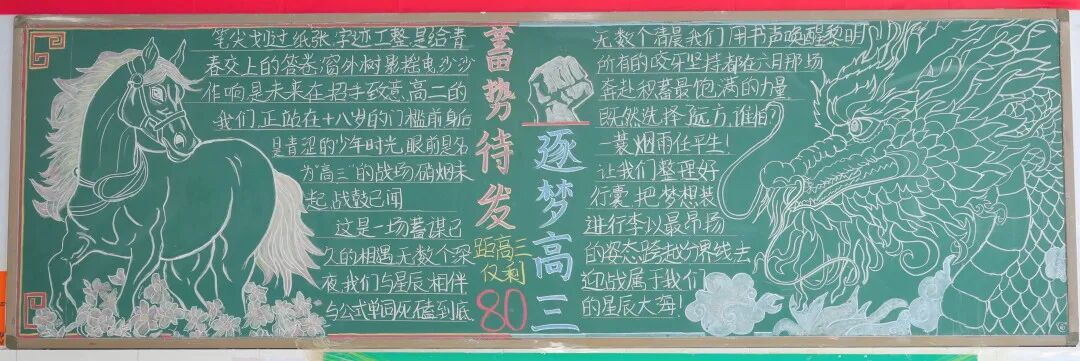 笔尖划过纸张,字迹工整,是给青
春交上的答卷,窗外树影摇曳,沙沙
作响,是未来在招手致意,高二的
我们,正站在十八岁的门槛前,身后
是青涩的少年时光,眼前是名
为“高三”的战场,硝烟未
起,战鼓已闻
这是一场蓄谋已
久的相遇,无数个深
夜我们与星辰相伴
与公式单词死磕到底
蓄势待发
逐梦高三
距高三
仅剩
80
无数个清晨我们用书声唤醒黎明
所有的咬牙坚持都在六月那场
奔赴积蓄最饱满的力量
既然选择远方,谁怕?
一蓑烟雨任平生!
让我们整理好
行囊,把梦想装
进行李以最昂扬
的姿态跨越分界线去
迎战属于我们
的星辰大海!